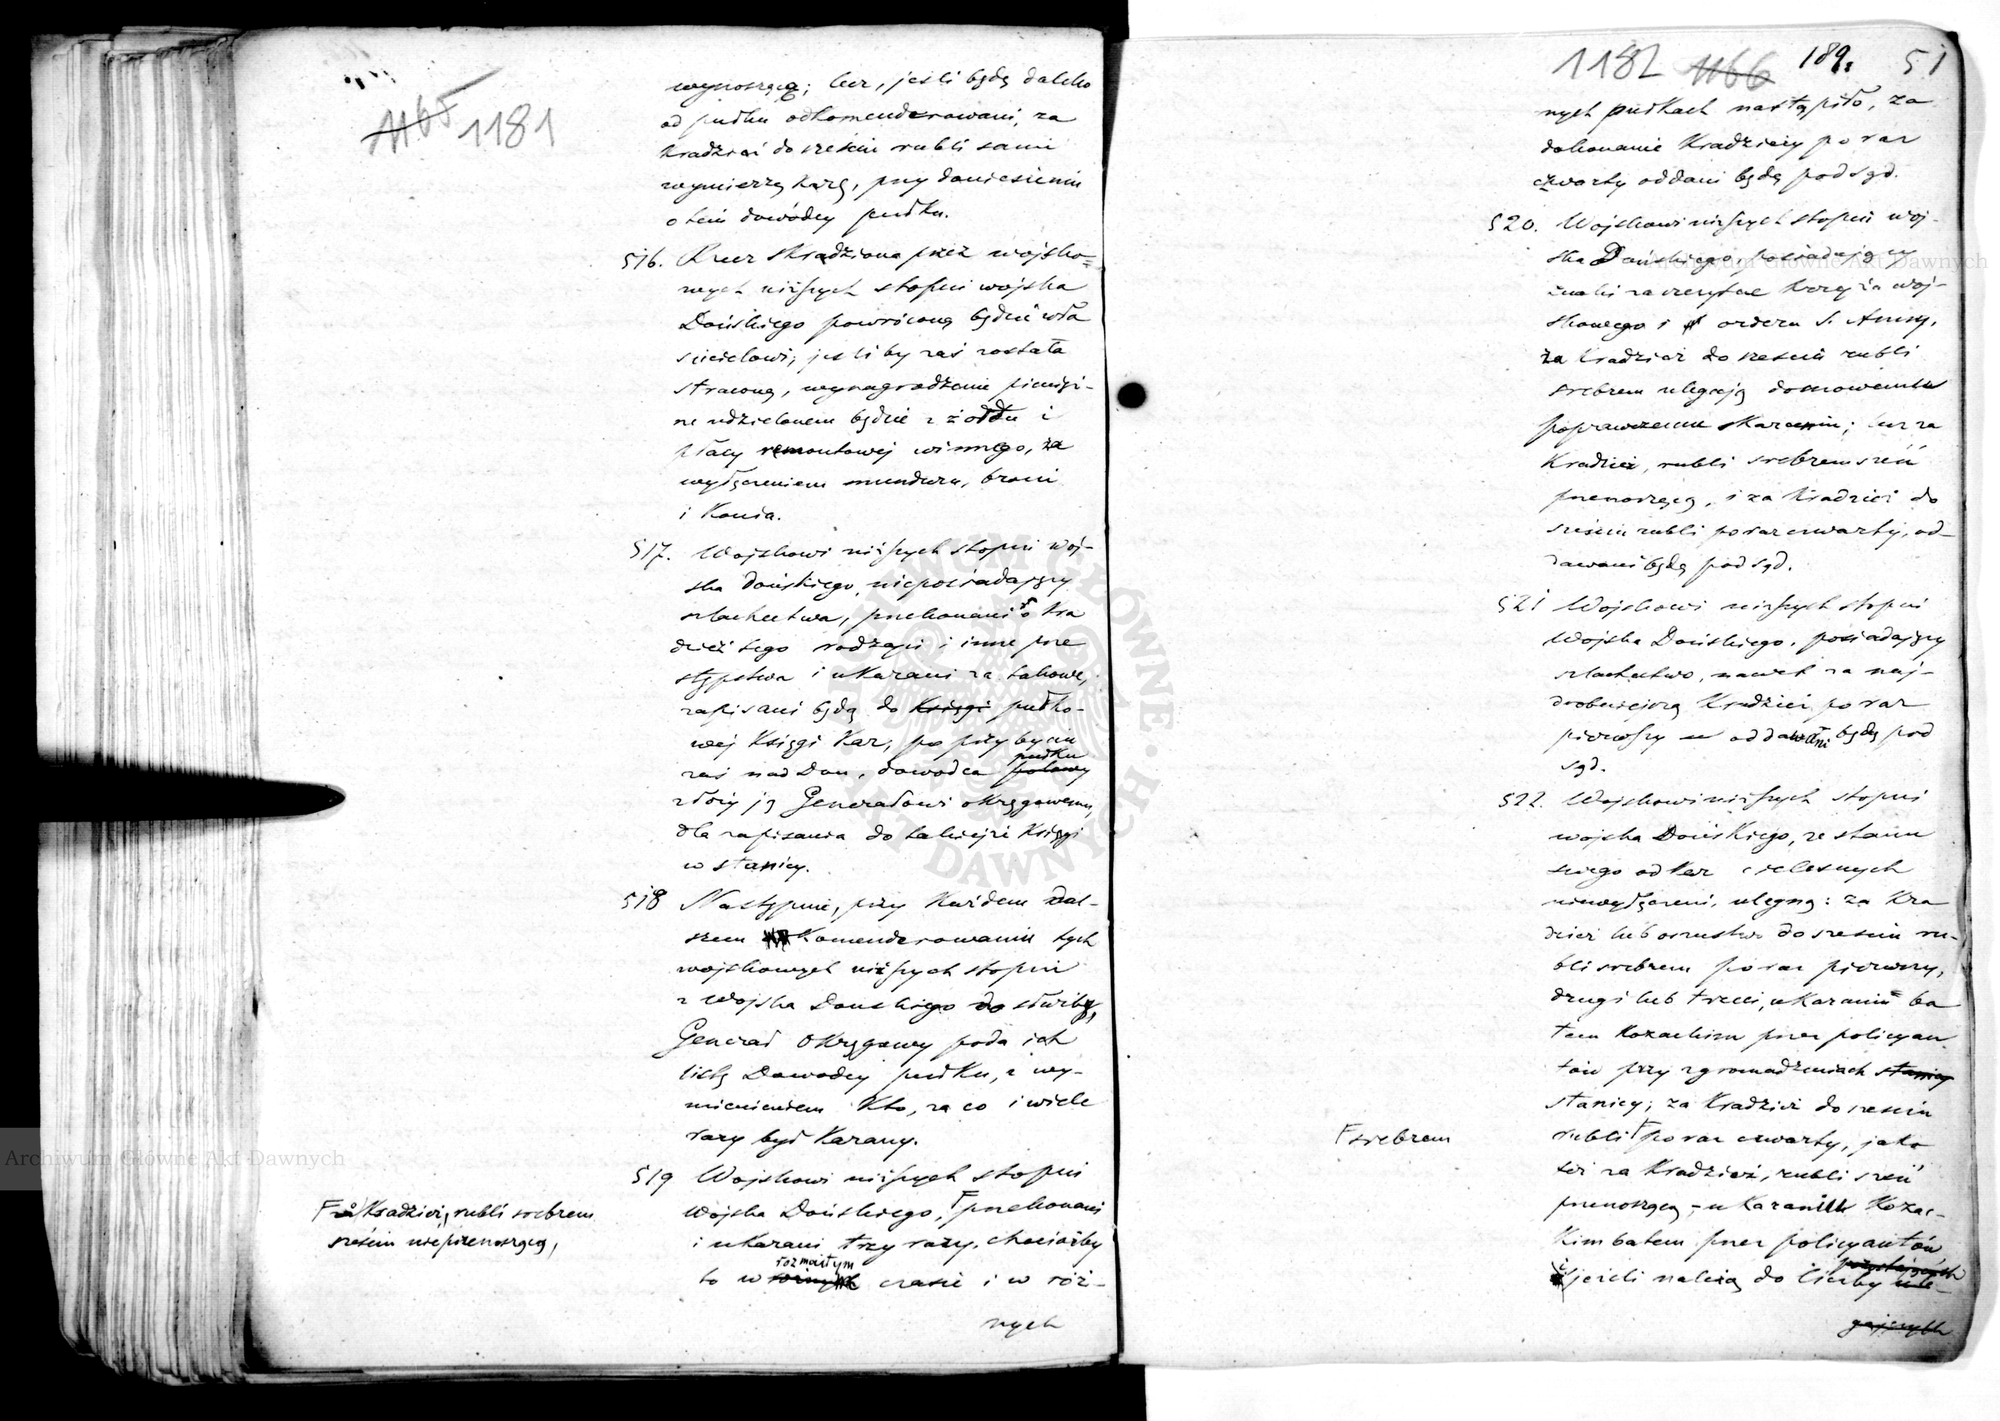 1165 1181
wynoszącą; lecz, jeśli będą daleko
od pułku odkomenderowani, za
kradzież do sześciu rubli sami
wymierzą karę, przy doniesieniu
o tem dowódcy pułku.
516. Rzecz skradziona przez wojsko=
wych niższych stopni wojska
Dońskiego powróconą będzie wła
ścicielowi; jeśliby zaś została
straconą, wynagrodzenie pienięż-
ne udzielonem będzie z żołdu i
płacy remontowej winnego, za
wyłączeniem munduru, broni
i Konia.
517. Wojskowi niższych stopni woj-
ska Dońskiego, nieposiadający
szlachectwa, przekonani o kra
dzież tego rodzaju i inne prze
stępstwa i ukarani za takowe,
zapisani będą do Księgi pułko-
wej Księgi Kar; po przybyciu
zaś nad Don, dowódca połowy pułku
złoży ją Generałowi okręgowemu,
dla zapisania do takiejże Księgi
w stanicy.
518 Następnie, przy Każdem dal-
szem Komenderowaniu tych
wojskowych niższych stopni
z Wojska Dońskiego do służby,
Generał Okręgowy poda ich
listę Dowódcy pułku, z wy-
mienieniem Kto, za co i wiele
razy był Karany.
519 Wojskowi niższych stopni
Wojska Dońskiego, Γ przekonani
i ukarani trzy razy, chociażby
to w rozmaitym czasie i w róż-
nych
Γ za Kradzież, rubli srebrem
sześciu nieprzenoszącą,
1182 1166 189. 51
nych pułkach nastąpiło, za
dokonanie Kradzieży po raz
czwarty oddani będą pod Sąd.
520. Wojskowi niższych stopni woj-
ska Dońskiego, posiadający
znaki zaszczytne Krzyża woj-
skowego i orderu S. Anny,
za kradzież do sześciu rubli
srebrem ulegają domowemu
poprawczemu skaraniu; lecz za
Kradzież, rubli srebrem sześć
przenoszącą, i za Kradzież do
sześciu rubli po raz czwarty, od-
dawani będą pod Sąd.
521 Wojskowi niższych stopni
Wojska Dońskiego, posiadający
szlachectwo, nawet za naj-
drobniejszą Kradzież, po raz
pierwszy oddawani będą pod
Sąd.
522. Wojskowi niższych stopni
wojska Dońskiego, ze stanu
swego od Kar cielesnych
niewyłączeni, ulegną: za Kra
dzież lub oszustwo do sześciu ru-
bli srebrem po raz pierwszy,
drugi lub trzeci, ukaraniu ba
tem Kozackim przez policyan
tów przy zgromadzeniach stanicy
stanicy; za Kradzież do sześciu
rubli Γ po raz czwarty, jako
też za Kradzież, rubli sześć
przenoszącą, – ukaraniu Kozac-
Kim batem przez policyantów
i jeżeli należą do liczby ule-
gających
Γ srebrem
Archiwum Główne Akt Dawnych
Archiwum Główne Akt Dawnych
ARCHIWUM GŁÓWNE AKT DAWNYCH